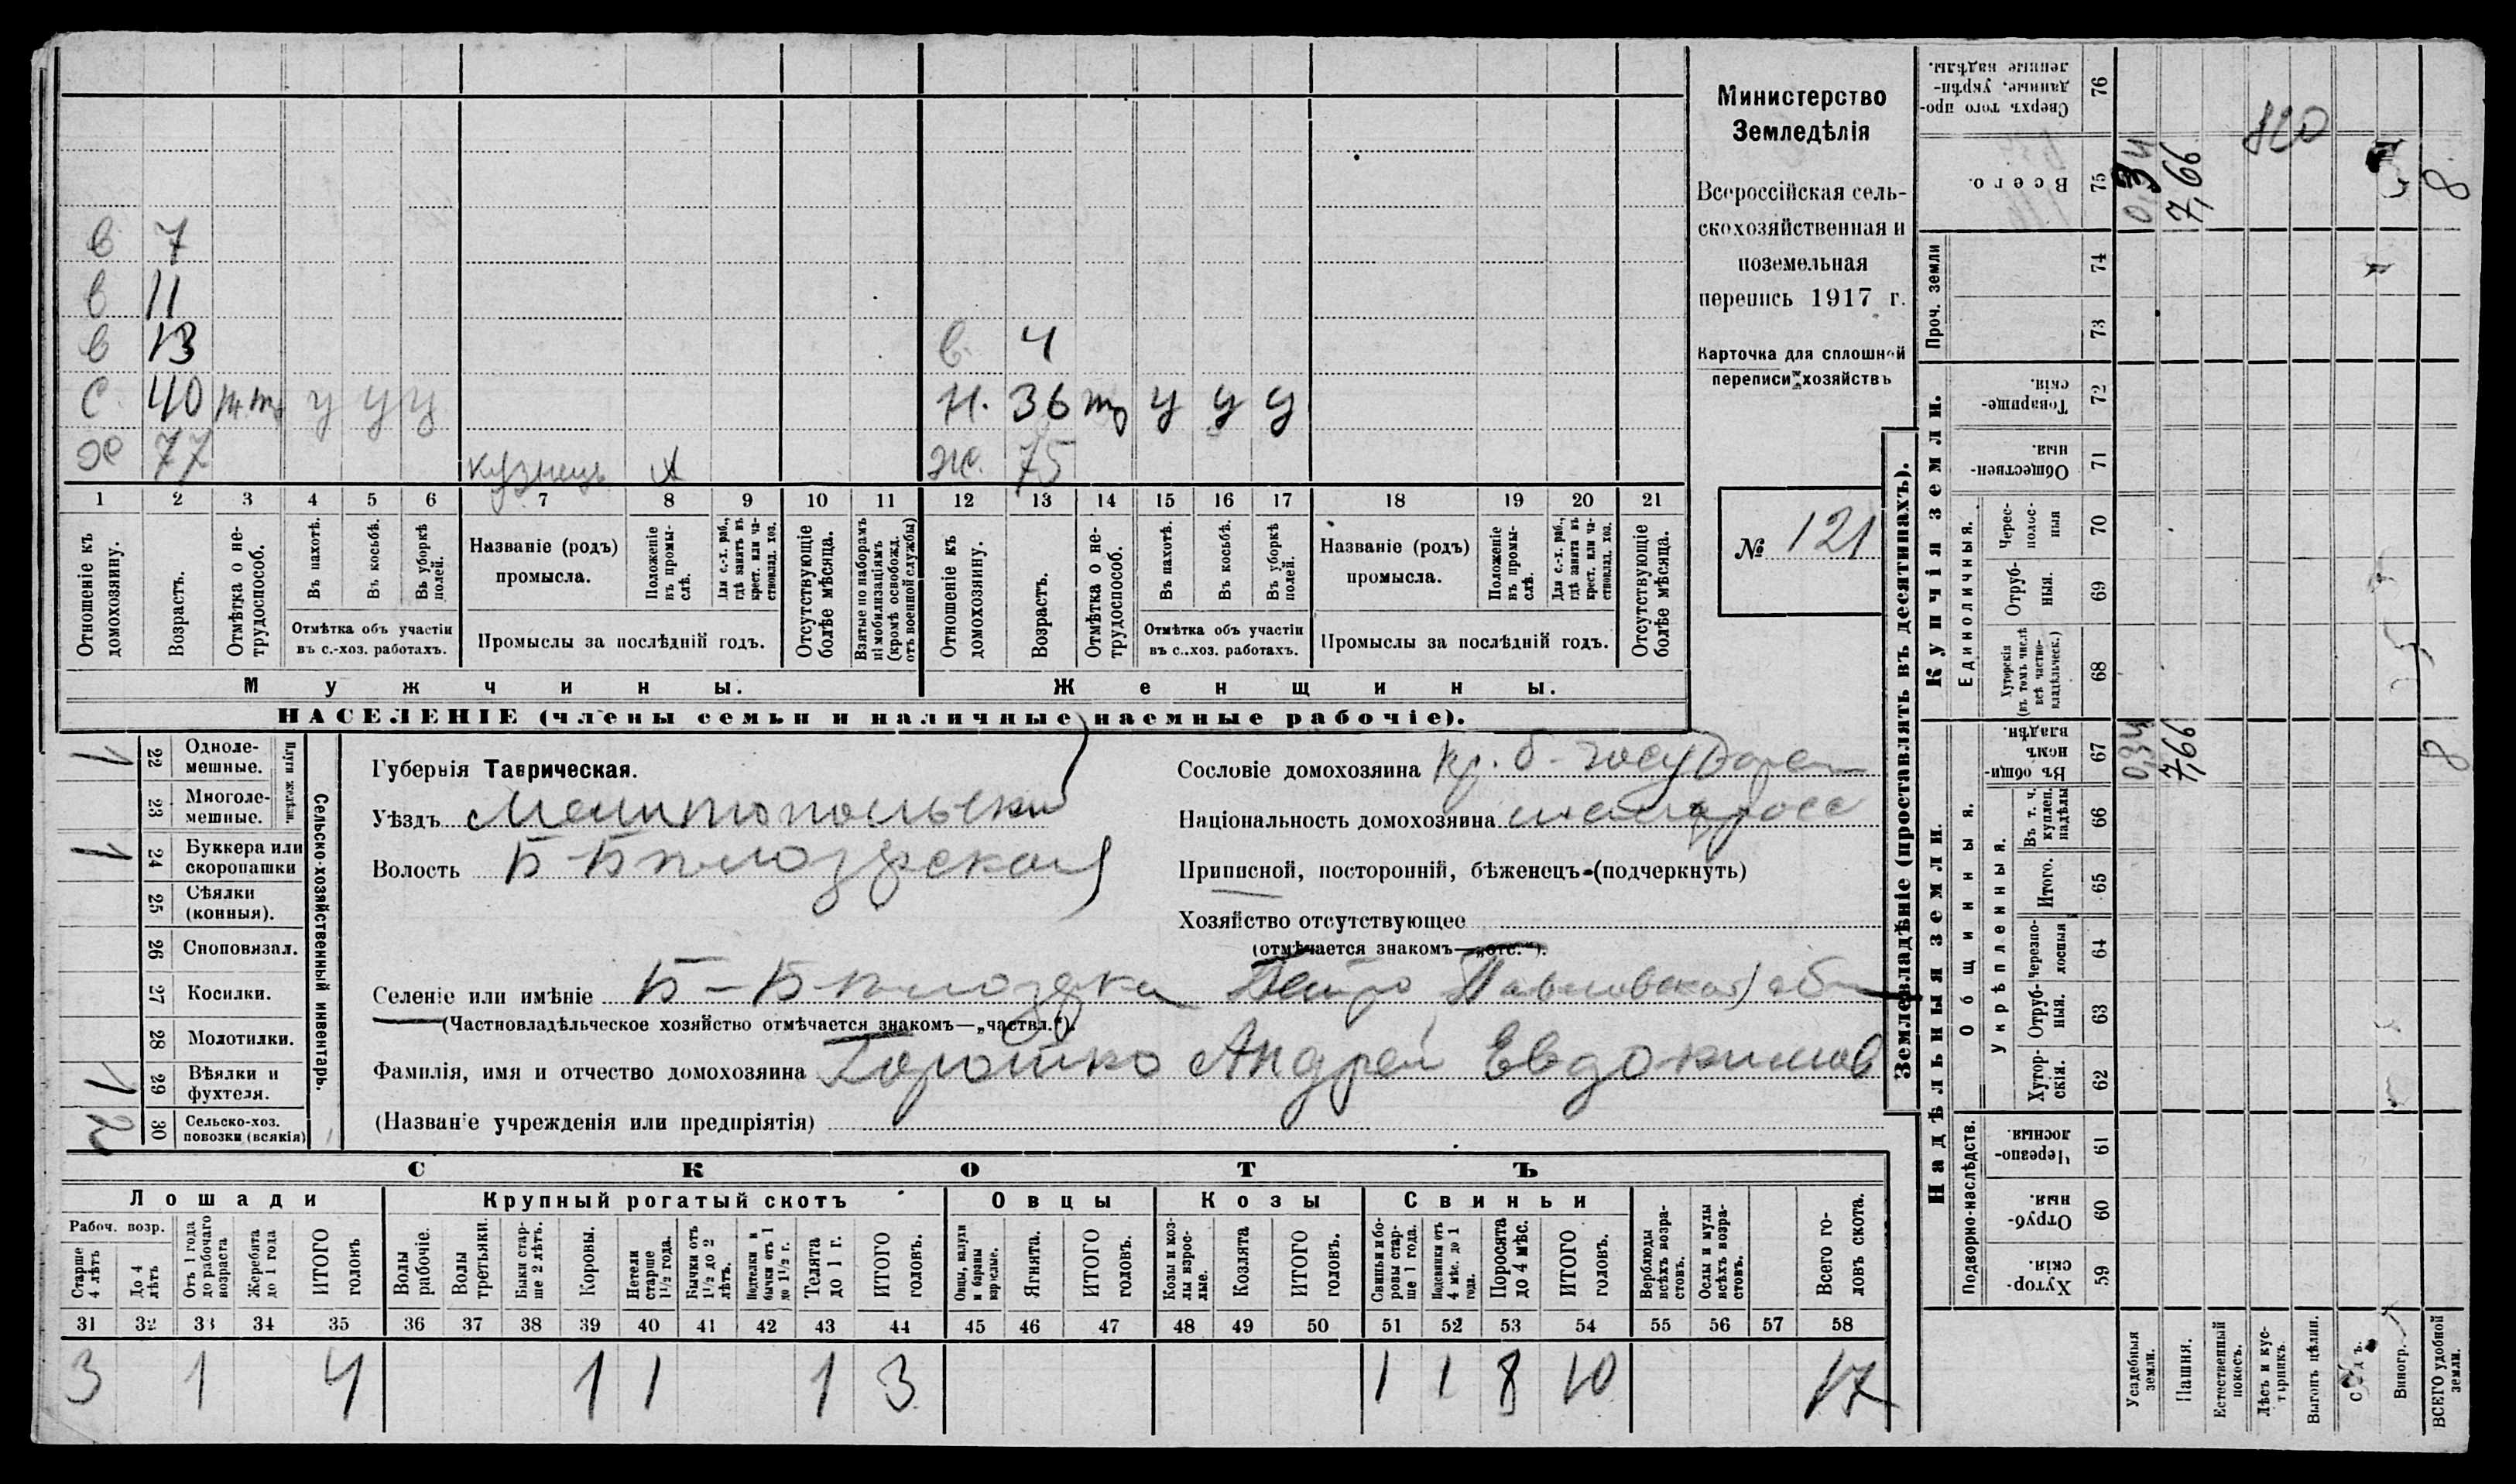 Министерство
Земледѣлія
Всероссійская сель-
скохозяйственная и
поземельная
перепись 1917 г.
Карточка для сплошной
переписи хозяйствъ
№ 121
в 7
в 11
в 13 в. 4
с. 40 у у у н. 36 у у у
х 77 кузнець х ж. 75
1 2 3 4 5 6 7 8 9 10 11 12 13 14 15 16 17 18 19 20 21
Отношеніе къ домохозяину.
Возрастъ.
Отмѣтка о не-трудоспособ.
Въ пахотѣ.
Въ косьбѣ.
Въ уборкѣ полей.
Отмѣтка объ участіи въ с.-хоз. работахъ.
Названіе (родъ) промысла.
Положеніе въ промы-слѣ.
Для с.-х. раб., гдѣ занятъ въ крест. или ча-стновлад. хоз.
Промыслы за послѣдній годъ.
Отсутствующіе болѣе мѣсяца.
Взятые по наборамъ и мобилизаціямъ (кромѣ освобожд. отъ военной службы)
Отношеніе къ домохозяину.
Возрастъ.
Отмѣтка о не-трудоспособ.
Въ пахотѣ.
Въ косьбѣ.
Въ уборкѣ полей.
Отмѣтка объ участіи въ с..хоз. работахъ.
Названіе (родъ) промысла.
Положеніе въ промы-слѣ.
Для с.-х. раб., гдѣ занята въ крест. или ча-стновлад. хоз.
Промыслы за послѣдній годъ.
Отсутствующіе болѣе мѣсяца.
Мужчины. Женщины.
НАСЕЛЕНІЕ (члены семьи и наличные наемные рабочіе).
Сельско-хозяйственный инвентарь.
Плуги желѣзн.
1 22 Одноле-мешные.
23 Многоле-мешные.
1 24 Буккера или скоропашки
25 Сѣялки (конныя).
26 Сноповязал.
27 Косилки.
28 Молотилки.
1 29 Вѣялки и фухтеля.
2 30 Сельско-хоз. повозки (всякія)
Губернія Таврическая.
Уѣздъ Мелитопольскій
Волость Б-Бѣлозерская
Сословіе домохозяина кр. б. государст
Національность домохозяина малоросс
Приписной, посторонній, бѣженецъ (подчеркнуть)
Хозяйство отсутствующее
(отмѣчается знакомъ—„отс.“).
Селеніе или имѣніе Б-Бѣлозерка Петро Павловская общ
(Частновладѣльческое хозяйство отмѣчается знакомъ—„частвл.“).
Фамилія, имя и отчество домохозяина Горошко Андрей Евдокимов
(Названіе учрежденія или предпріятія)
СКОТЪ
Лошади Крупный рогатый скотъ Овцы Козы Свиньи
Рабоч. возр.
Старше 4 лѣтъ
До 4 лѣтъ
Отъ 1 года до рабочаго возраста
Жеребята до 1 года
ИТОГО головъ
Волы рабочіе.
Волы третьяки.
Быки стар-ше 2 лѣтъ.
Коровы.
Нетели старше 1½ года.
Бычки отъ 1½ до 2 лѣтъ.
Подтелки и бычки отъ 1 до 1½ г.
Телята до 1 г.
ИТОГО головъ.
Овцы, валухи и бараны взрослые.
Ягнята.
ИТОГО головъ.
Козы и коз-лы взрос-лые.
Козлята
ИТОГО головъ.
Свиньи и бо-ровы стар-ше 1 года.
Подсвинки отъ 4 мѣс. до 1 года.
Поросята до 4 мѣс.
ИТОГО головъ.
Верблюды всѣхъ возра-стовъ.
Ослы и мулы всѣхъ возра-стовъ.
Всего го-ловъ скота.
31 32 33 34 35 36 37 38 39 40 41 42 43 44 45 46 47 48 49 50 51 52 53 54 55 56 57 58
3 1 4 1 1 1 3 1 1 8 10 17
Землевладѣніе (проставлять въ десятинахъ).
Надѣльныя земли.
Купчія земли.
Проч. земли
Подворно-наслѣдств.
Общинныя.
Укрѣпленныя.
Единоличныя.
Сверхъ того про-данные, укрѣп-ленные надѣлы. 76
Всего. 75 0,34 7,66 8
820
74
73
Товарище-скія. 72
Обществен-ныя. 71
Черес-полос-ныя 70
Отруб-ныя. 69
Хуторскія (въ томъ числѣ всѣ частно-владѣльческ.) 68
Въ общи-номъ владѣн. 67 0,34 7,66 8
Въ т. ч. куплен. надѣлы 66
Итого. 65
Черезпо-лосныя 64
Отруб-ныя. 63
Хутор-скія. 62
Черезпо-лосныя. 61
Отруб-ныя. 60
Хутор-скія. 59
Усадебныя земли.
Пашня.
Естественный покосъ.
Лѣсъ и кус-тарникъ.
Выгонъ цѣлин.
Садъ.
Виногр.
ВСЕГО удобной земли.